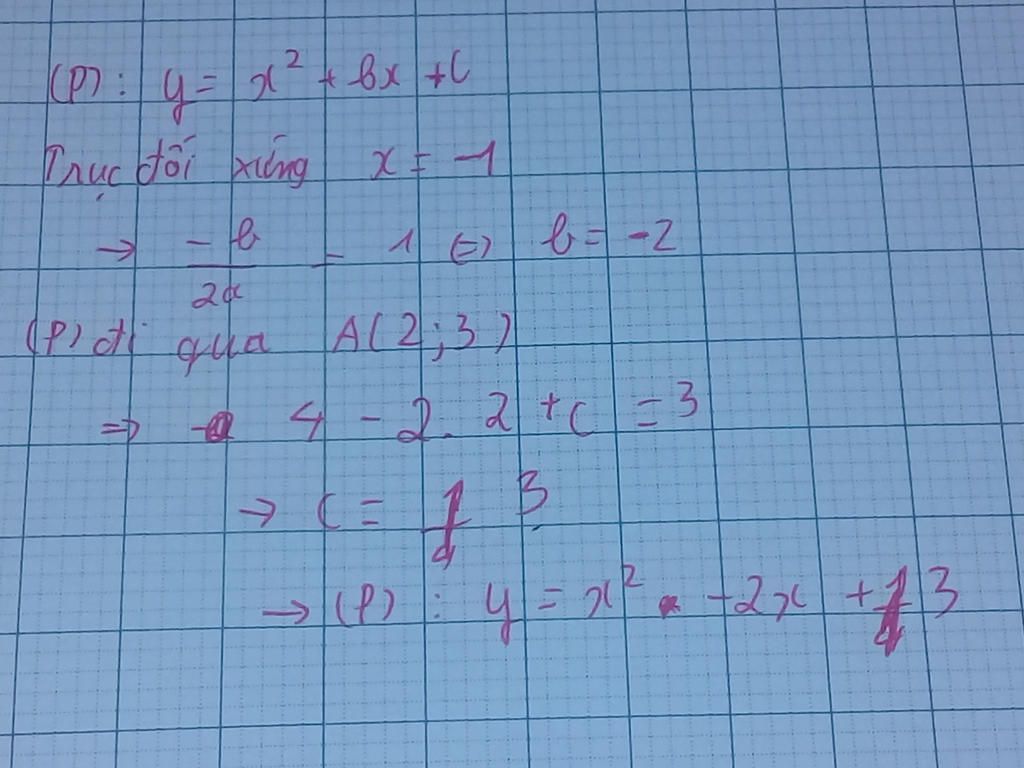 (P): y = x² + bx + c
Trục đối xứng x = -1
→ -b/2a = 1 ⇔ b = -2
(P) đi qua A(2;3)
⇒ 4 - 2. 2 + c = 3
→ c = 3
→ (P) : y = x² - 2x + 3